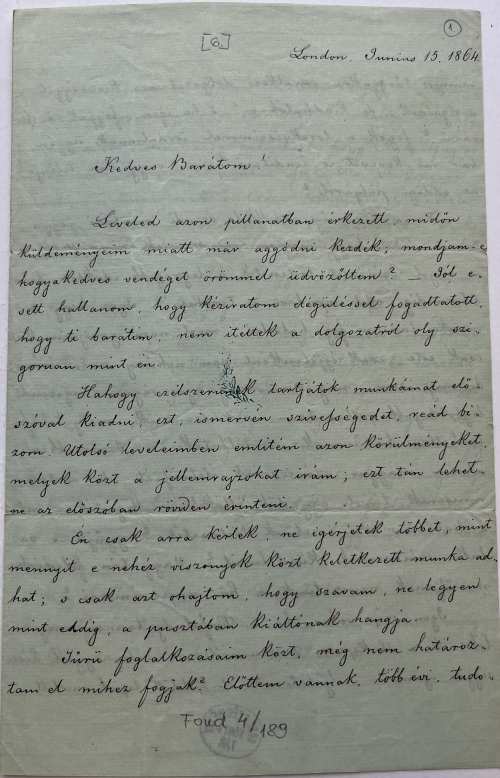 [6]
1.
London, Junius 15. 1864.
Kedves Barátom!
Leveled azon pillanatban érkezett, midőn
küldeményeim miatt már aggódni kezdék; mondjam-e
hogy a kedves vendéget örömmel üdvözöltem? — Jól e-
sett hallanom, hogy kéziratom elégüléssel fogadtatott,
hogy ti barátim, nem itéltek a dolgozatról oly szi-
goruan mint én.
Hahogy czélszerünek tartjátok munkámat elő-
szóval kiadni, ezt, ismervén szivességedet, reád bi-
zom. Utolsó leveleimben emlitém azon körülményeket,
melyek közt a jellemrajzokat irám; ezt tán lehet-
ne az előszóban röviden érinteni.
Én csak arra kérlek, ne igérjetek többet, mint
mennyit e nehéz viszonyok közt keletkezett munka ad-
hat; s csak azt ohajtom, hogy szavam, ne legyen
mint eddig, a pusztában kiáltónak hangja.
Sürü foglalkozásaim közt, még nem határoz-
tam el mihez fogjak? Előttem vannak, több évi, tudo-
Fond 4/189